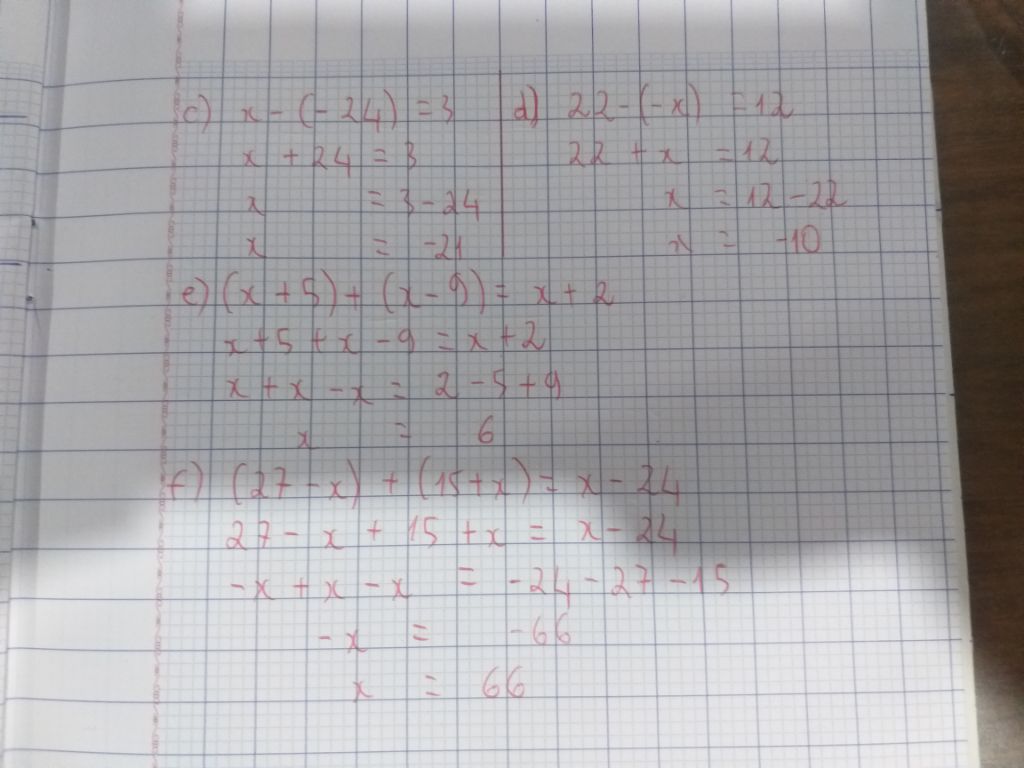 c) x - (- 24) = 3
x + 24 = 3
x = 3 - 24
x = -21
d) 22 - (-x) = 12
22 + x = 12
x = 12 - 22
x = -10
e) (x + 5) + (x - 9) = x + 2
x + 5 + x - 9 = x + 2
x + x - x = 2 - 5 + 9
x = 6
f) (27 - x) + (15 + x) = x - 24
27 - x + 15 + x = x - 24
-x + x - x = -24 - 27 - 15
-x = -66
x = 66